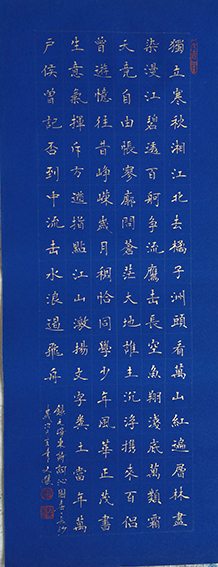 獨立寒秋湘江北去橘子洲頭看萬山紅遍層林盡
染漫江碧透百舸争流鷹击長空魚翔淺底萬類霜
天竞自由悵寥廓問蒼茫大地誰主沉浮携來百侣
曾遊憶往昔崢嶸歲月稠恰同學少年風華正茂書
生意氣揮斥方遒指點江山激揚文字糞土當年萬
户侯曾記否到中流击水浪遏飛舟
録毛澤東詩詞沁園春長沙